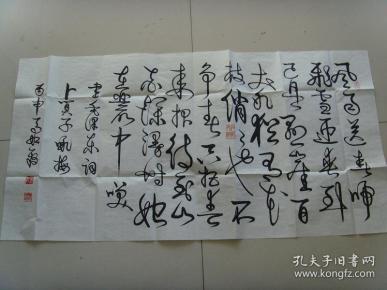 風雨送春歸
飛雪迎春到
已是懸崖百
丈冰猶有花
枝俏俏也不
争春只把春
来报待到山
花爛漫時她
在叢中咲
書毛澤東詞
卜算子咏梅
丙申
孔夫子旧书网
www.kongfz.com